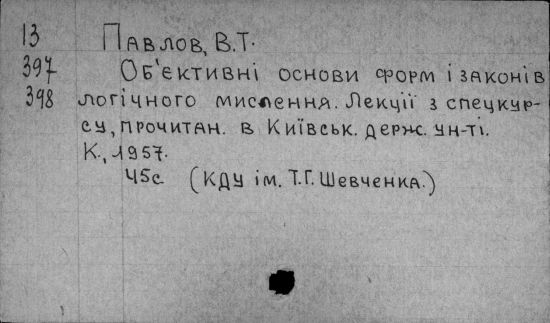 13 Павлов, В.Т.
397 Об'єктивні основи форм і законів
398 логічного мислення. Лекції з спецкур-
су, прочитан. в Київськ. держ. ун-ті.
К., 1957.
45с (КДУ ім. Т.Г. Шевченка.)